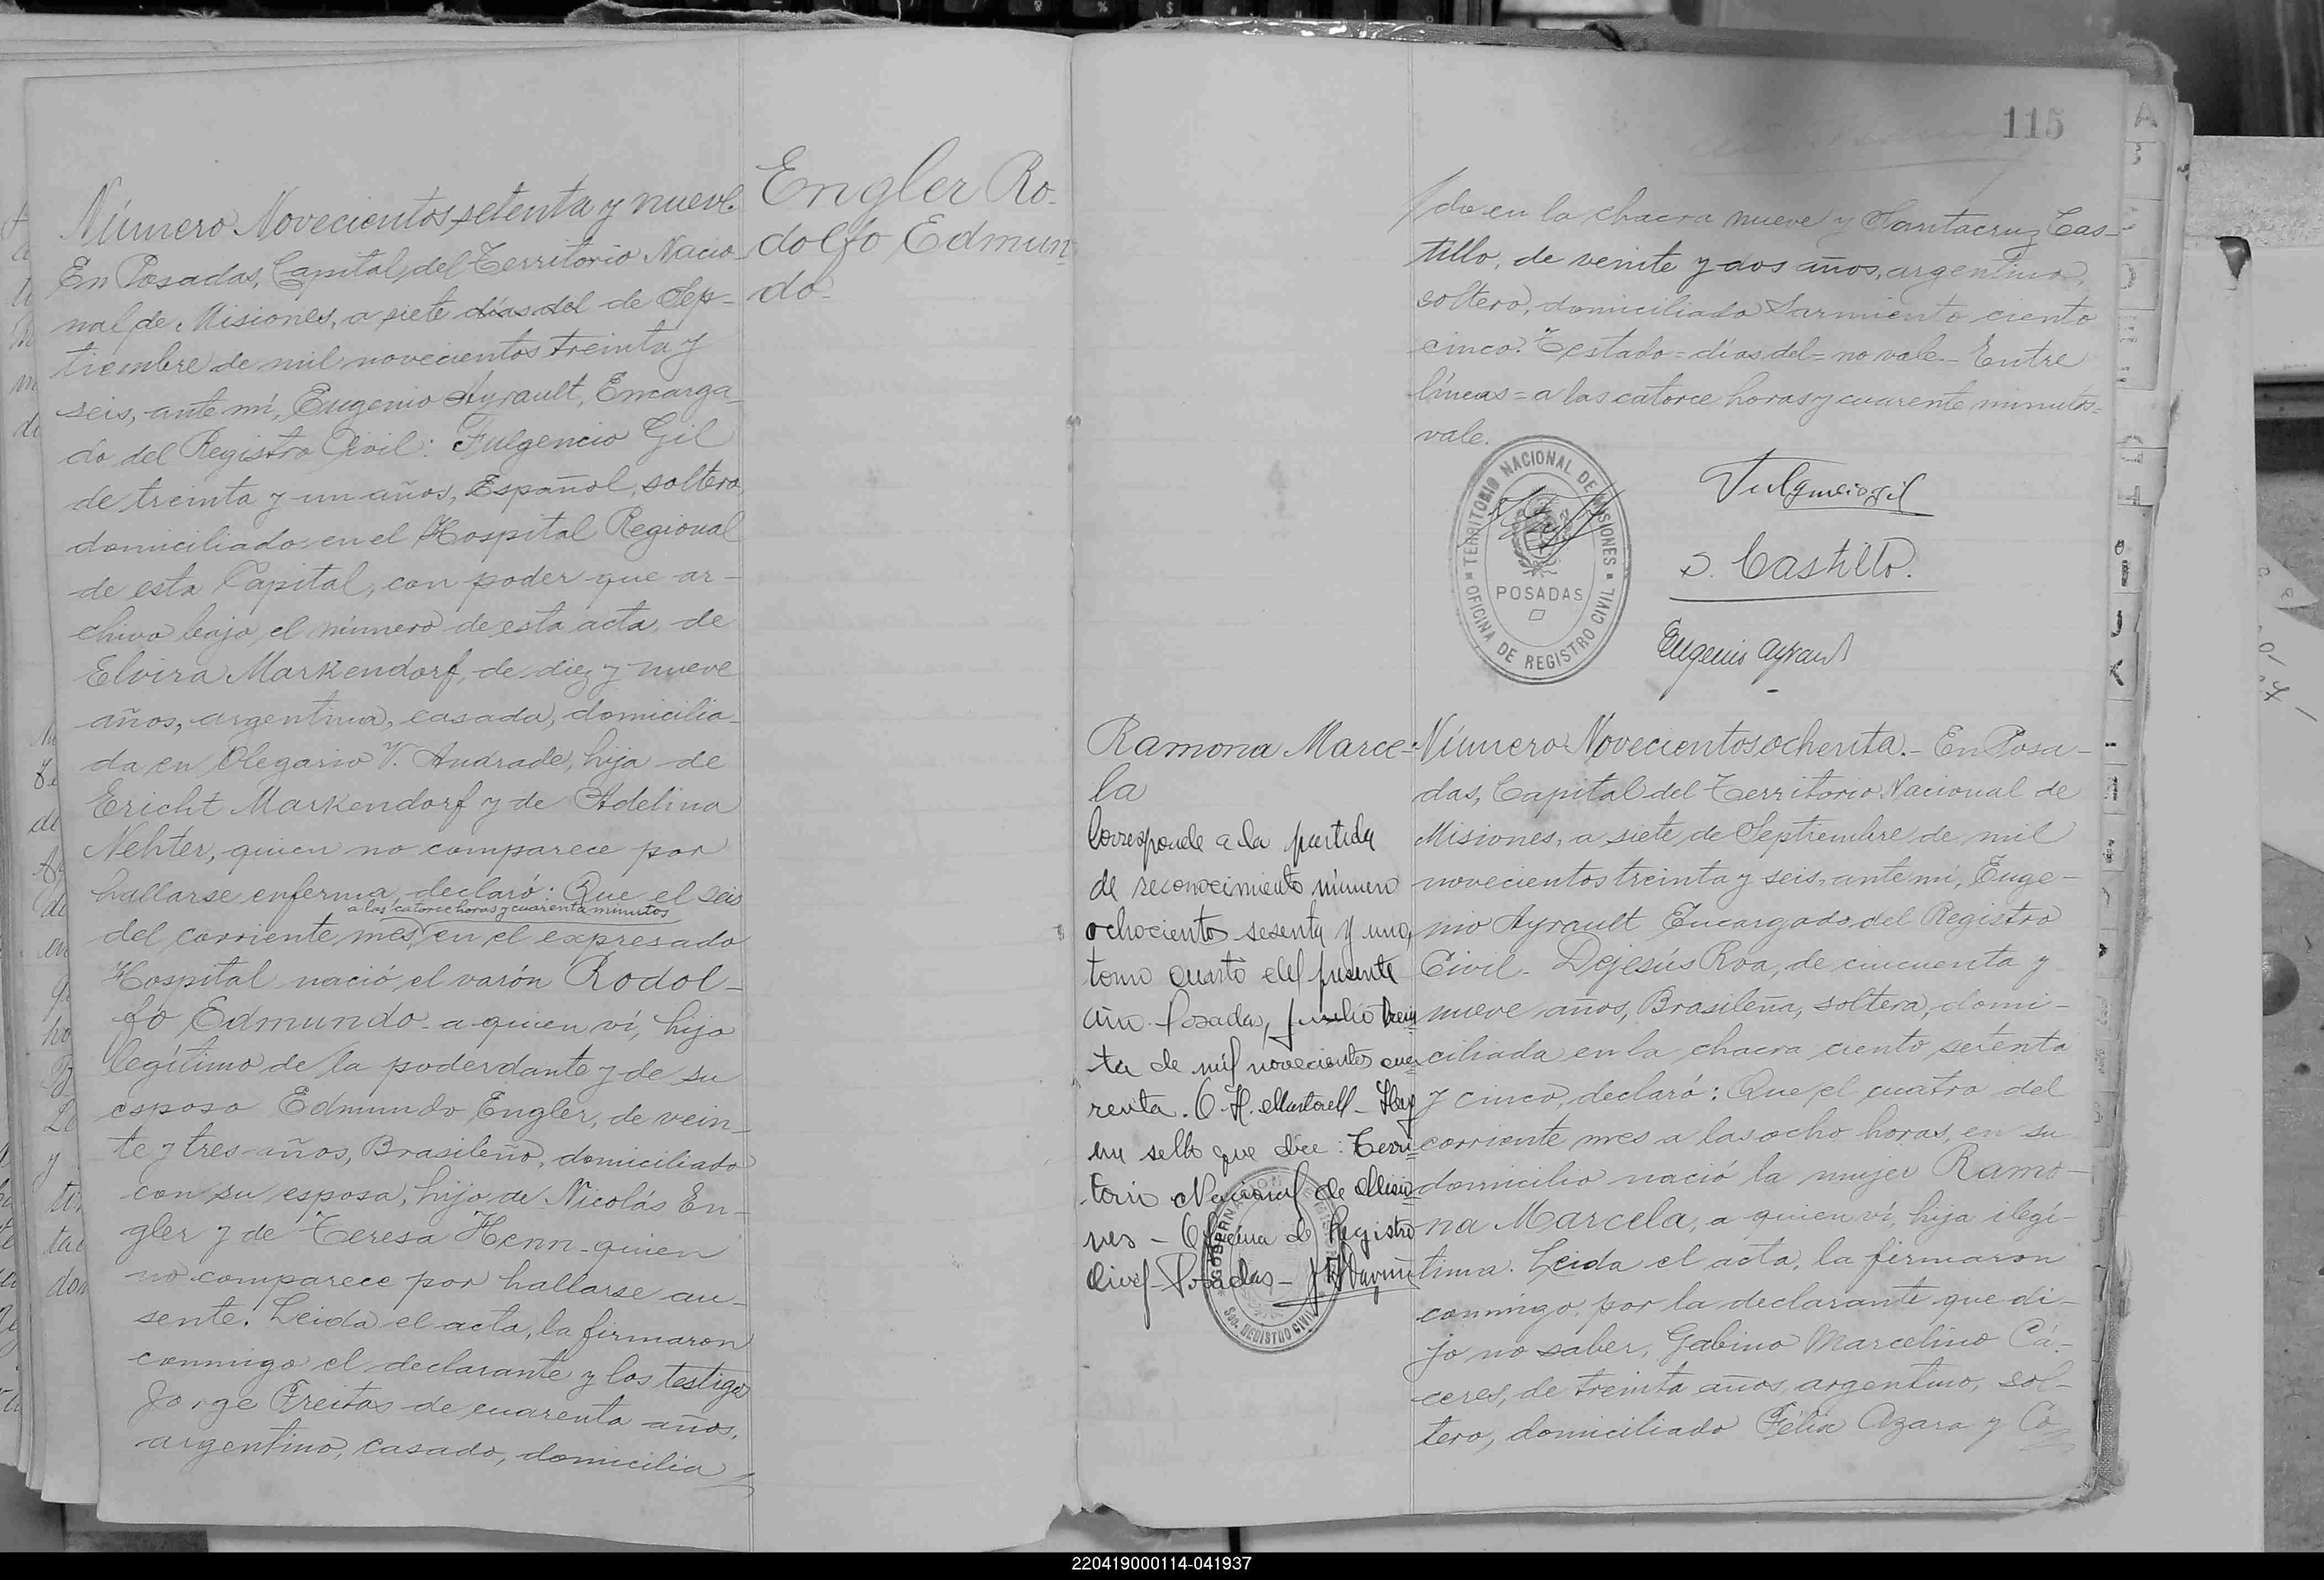 Número Novecientos setenta y nueve
En Posadas, Capital del Territorio Nacio-
nal de Misiones, a siete días del de Sep-
tiembre de mil novecientos treinta y
seis, ante mí, Eugenio Ayrault, Encarga-
do del Registro Civil: Fulgencio Gil
de treinta y un años, Español, soltero,
domiciliado en el Hospital Regional
de esta Capital, con poder que ar-
chivo bajo el número de esta acta, de
Elvira Markendorf, de diez y nueve
años, argentina, casada, domicilia-
da en Olegario V. Andrade, hija de
Ericht Markendorf y de Adelina
Nehter, quien no comparece por
hallarse enferma, declaró: Que el seis
a las catorce horas y cuarenta minutos
del corriente mes, en el expresado
Hospital nació el varón Rodol-
fo Edmundo a quien ví, hijo
legítimo de la poderdante y de su
esposo Edmundo Engler, de vein-
te y tres años, Brasileño, domiciliado
con su esposa, hijo de Nicolás En-
gler y de Teresa Henn quien
no comparece por hallarse au-
sente. Leida el acta, la firmaron
conmigo el declarante y los testigos
Jorge Freitas de cuarenta años,
argentino, casado, domicilia
Engler Ro-
dolfo Edmun
do-
115
do en la chacra nueve y Santacruz Cas-
tillo, de veinte y dos años, argentino,
soltero, domiciliado Sarmiento ciento
cinco. Testado = días del = no vale - Entre
líneas = a las catorce horas y cuarente minutos =
vale.
TERRITORIO NACIONAL DE MISIONES
POSADAS
OFICINA DE REGISTRO CIVIL
Fulgencio Gil
S. Castillo.
Eugenio Ayrault
Ramona Marce-
la
Corresponde a la partida
de reconocimiento número
ochocientos sesenta y uno,
tomo cuarto del presente
año. Posadas, Julio trein
ta de mil novecientos cua
renta. O. H. Martorell - Hay
un sello que dice: Terri
torio Nacional de Misio
nes - Oficina de Registro
Civil - Posadas -
SEC. REGISTRO CIVIL
Número Novecientos ochenta. - En Posa-
das, Capital del Territorio Nacional de
Misiones, a siete de Septiembre de mil
novecientos treinta y seis, ante mí, Euge-
nio Ayrault Encargado del Registro
Civil - Dejesús Roa, de cincuenta y
nueve años, Brasileña, soltera, domi-
ciliada en la chacra ciento setenta
y cinco, declaró: Que el cuatro del
corriente mes a las ocho horas, en su
domicilio nació la mujer Ramo-
na Marcela, a quien ví, hija ilegí-
tima. Leida el acta, la firmaron
conmigo, por la declarante que di-
jo no saber, Gabino Marcelino Cá-
ceres, de treinta años, argentino, sol-
tero, domiciliado Félix Azara y Co
220419000114-041937